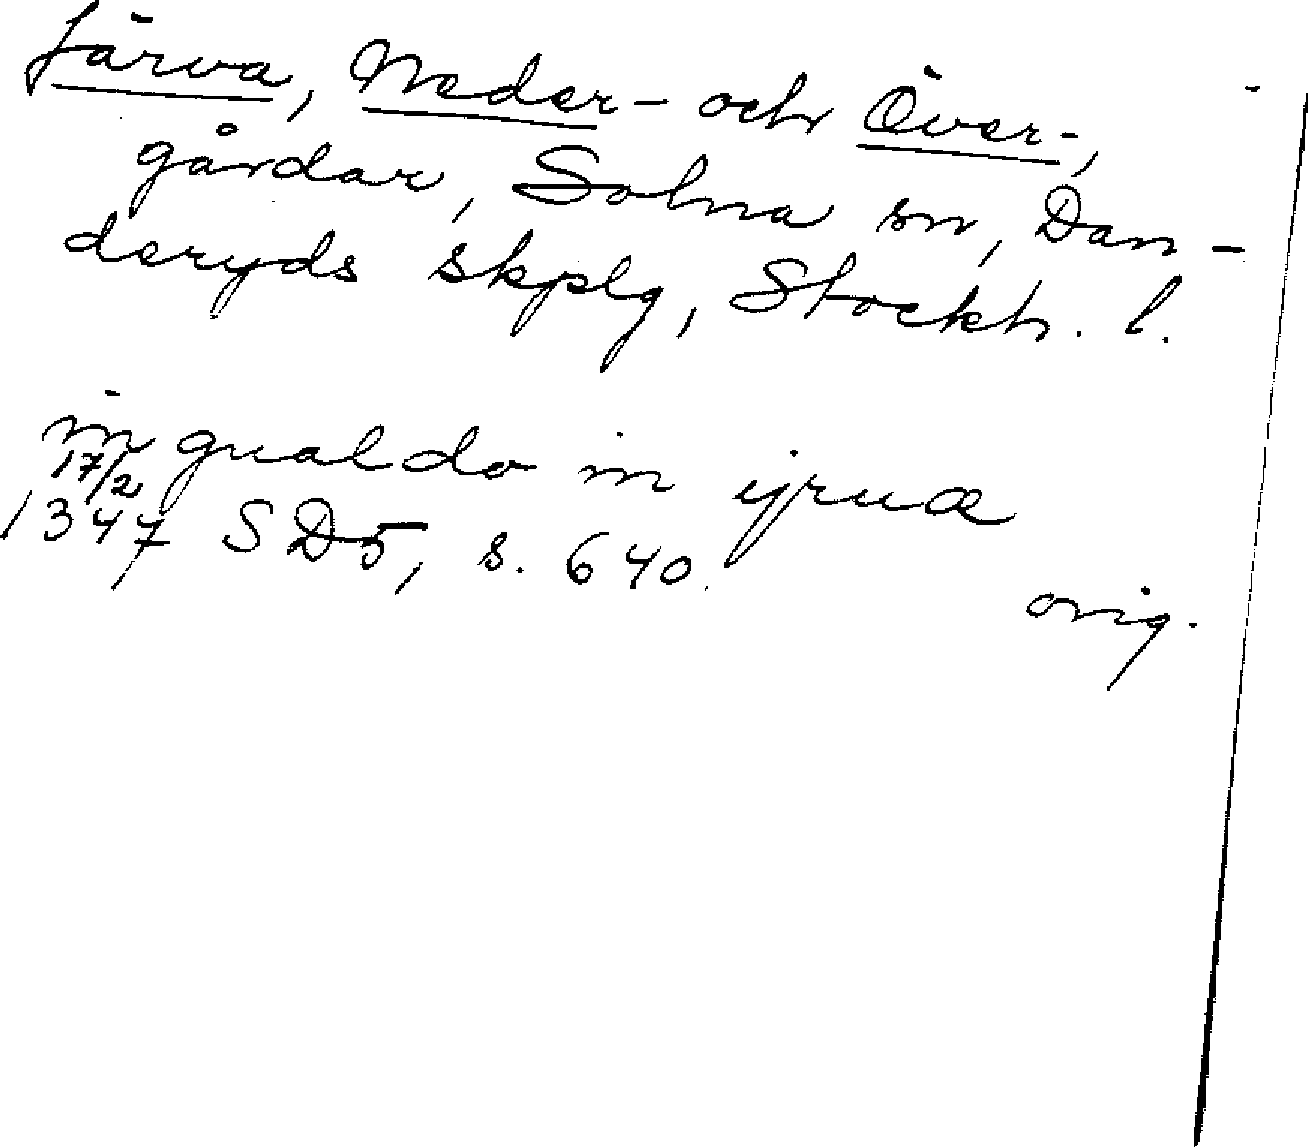 Järva, Neder- och Över-,
gårdar, Solna sn, Dan-
deryds skplg, Stockh. l.
in gualdo in yruæ
17/2
1347 SD5, s. 640.
orig.